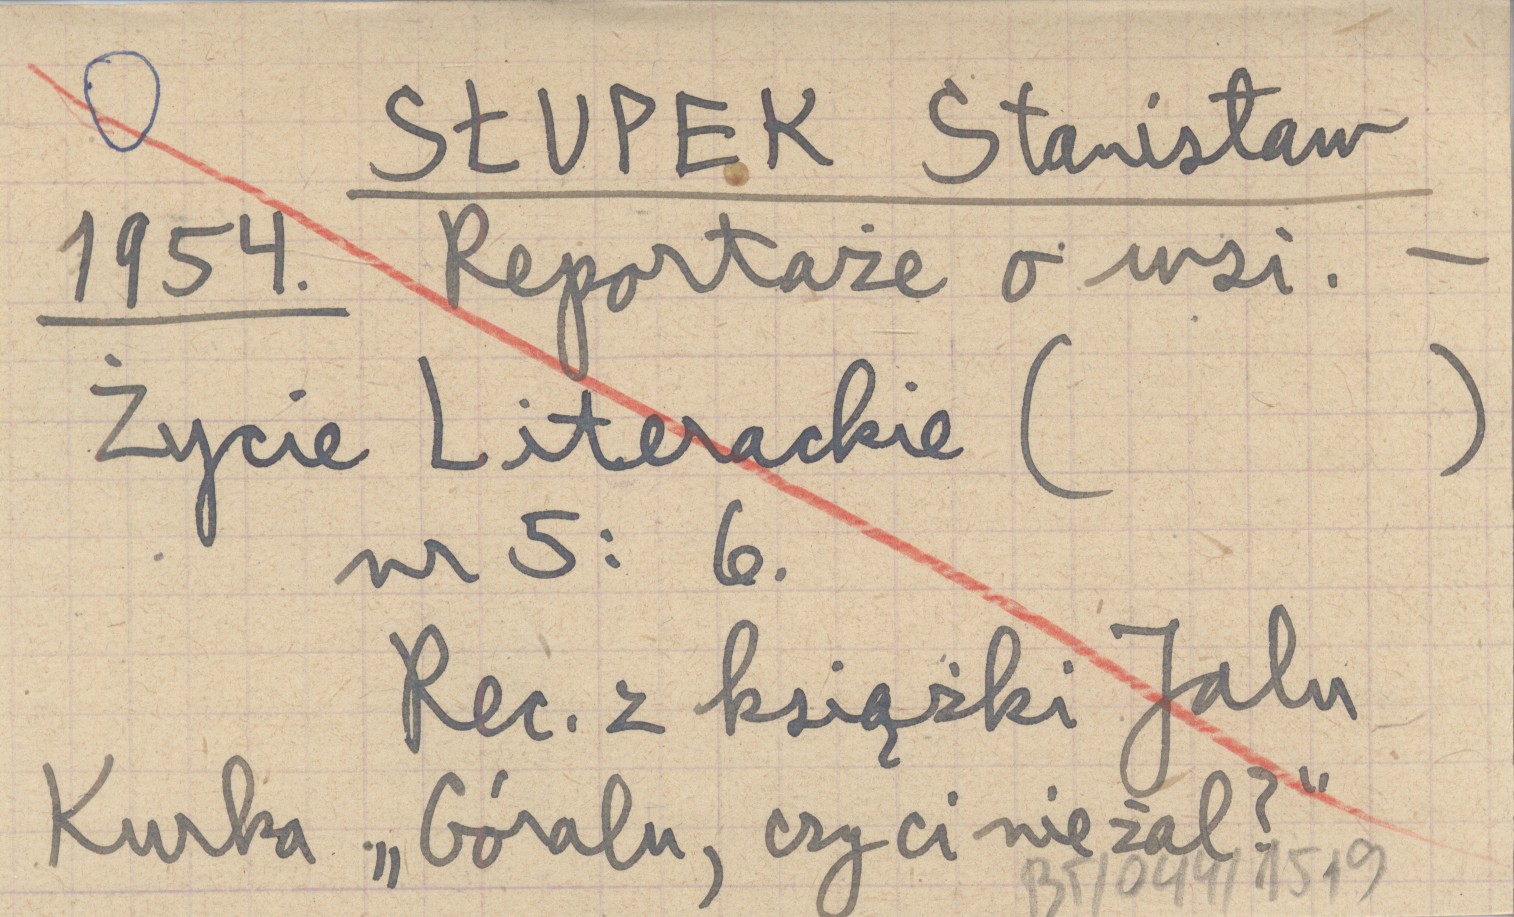 SŁUPEK Stanisław
1954. Reportaże o wsi. –
Życie Literackie (          )
nr 5: 6.
Rec. z książki Jalu
Kurka „Góralu, czy ci nie żal?"
BT/044/1519